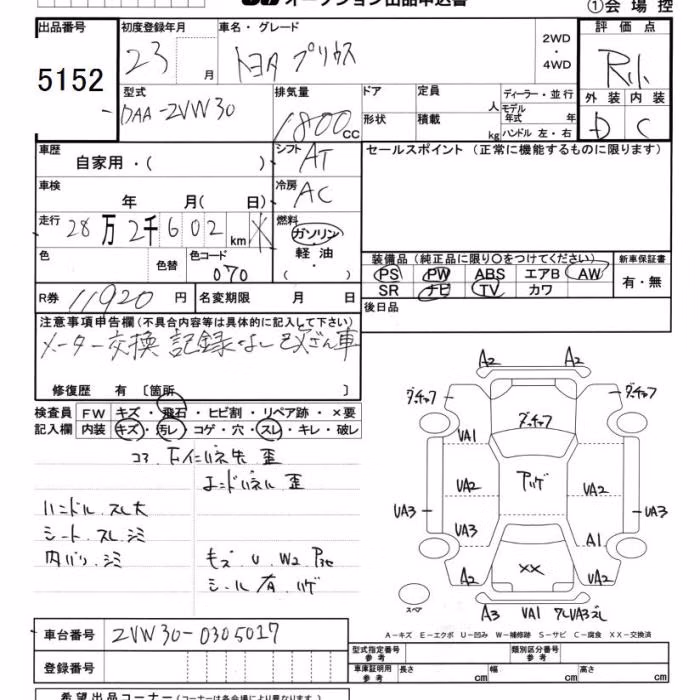 オークション出品申込書
①会場控
出品番号
5152
初度登録年月
23 月
車名・グレード
トヨタ プリウス
2WD
・
4WD
評価点
R
外装 内装
D C
型式
DAA-ZVW30
排気量
1800 cc
ドア
定員
人
ディーラー・並行
モデル
年式 年
形状
積載
kg
ハンドル 左・右
車歴
自家用・( )
シフト
AT
セールスポイント (正常に機能するものに限ります)
車検
年 月( 日)
冷房
AC
走行
28万2千602 km
燃料
ガソリン
軽油
・
( )
色
色替
色コード
070
装備品(純正品に限り〇をつけてください)
新車保証書
PS PW ABS エアB AW
SR ナビ TV カワ
有・無
R券 11920 円
名変期限 月 日
後日品
注意事項申告欄(不具合内容等は具体的に記入して下さい)
メーター交換 記録なし 改ざん車
修復歴 有〔箇所 〕
検査員
記入欄
FW キズ・飛石・ヒビ割・リペア跡・×要
内装 キズ・汚レ・コゲ・穴・スレ・キレ・破レ
コア
歪
エンドパネル 歪
ハンドル スレ大
シート スレ シミ
内バリ シミ
モズ U W2
シール有 ハゲ
A2 A2
ダ.チャク ダ.チャク
ダ.チャク
VA1
アハゲ
VA2 VA2
VA3 VA3
VA3 A1
A2 ×× UA2
スペア
A3 VA1
A-キズ E-エクボ U-凹み W-補修跡 S-サビ C-腐食 XX-交換済
車台番号
ZVW30-0305017
登録番号
型式指定番号
参考
類別区分番号
参考
車庫証明用
参考
長さ cm
幅 cm
高さ cm
希望出品コーナー(コーナーは各会場により異なります)